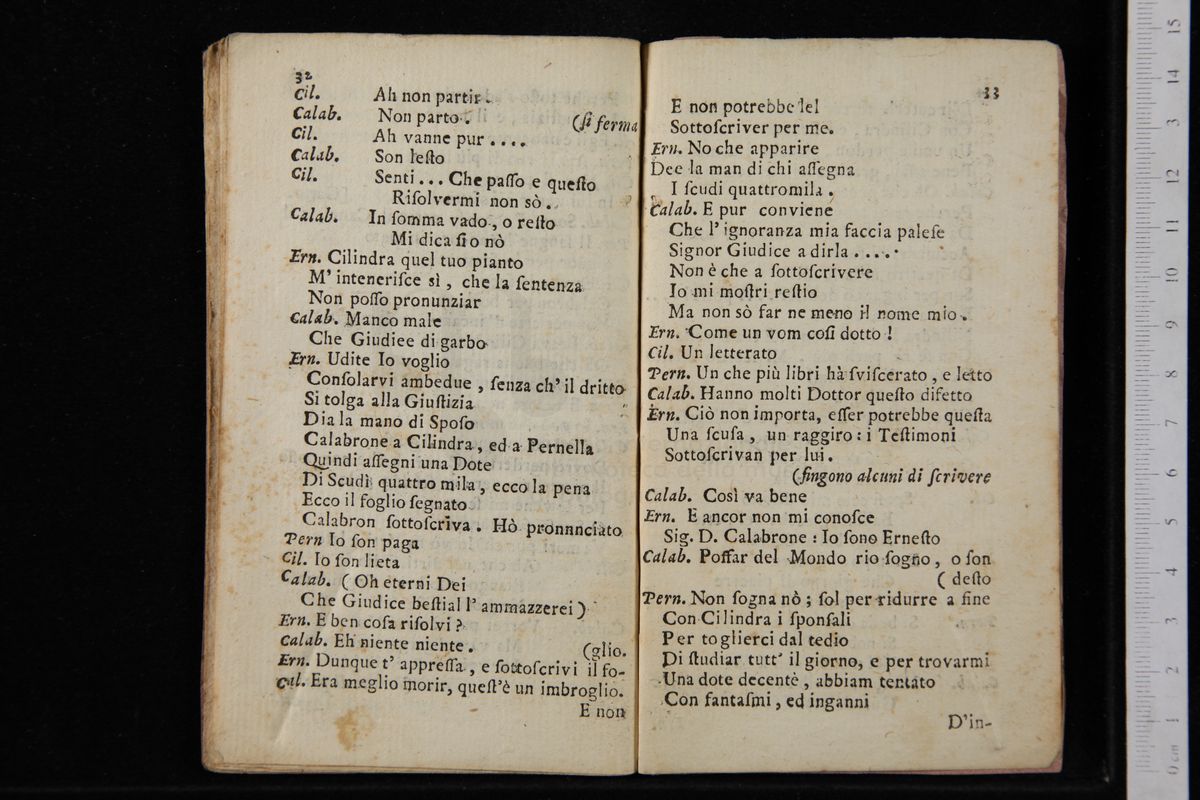 32
Cil. Ah non partir.
Calab. Non parto. (ſi ferma
Cil. Ah vanne pur ....
Calab. Son leſto
Cil. Senti... Che paſſo e queſto
Riſolvermi non sò..
Calab. In ſomma vado, o reſto
Mi dica ſi o nò
Ern. Cilindra quel tuo pianto
M' inteneriſce sì, che la ſentenza
Non poſſo pronunziar
Calab. Manco male
Che Giudiee di garbo
Ern. Udite Io voglio
Conſolarvi ambedue, ſenza ch' il dritto
Si tolga alla Giuſtizia
Dia la mano di Spoſo
Calabrone a Cilindra, ed a Pernella
Quindi aſſegni una Dote
Di Scudi quattro mila, ecco la pena
Ecco il foglio ſegnato
Calabron ſottoſcriva. Hò pronnnciato
Pern Io ſon paga
Cil. Io ſon lieta
Calab. (Oh eterni Dei
Che Giudice beſtial l' ammazzerei)
Ern. E ben coſa riſolvi?
Calab. Eh niente niente. (glio.
Ern. Dunque t' appreſſa, e ſottoſcrivi il fo-
Cal. Era meglio morir, queſt'è un imbroglio.
E non
33
E non potrebbe lel
Sottoſcriver per me.
Ern. No che apparire
Dee la man di chi aſſegna
I ſcudi quattromila.
Calab. E pur conviene
Che l' ignoranza mia faccia paleſe
Signor Giudice a dirla .....
Non è che a ſottoſcrivere
Io mi moſtri reſtio
Ma non sò far ne meno il nome mio.
Ern. Come un vom coſi dotto!
Cil. Un letterato
Pern. Un che più libri hà ſviſcerato, e letto
Calab. Hanno molti Dottor queſto difetto
Ern. Ciò non importa, eſſer potrebbe queſta
Una ſcuſa, un raggiro: i Teſtimoni
Sottoſcrivan per lui.
(fingono alcuni di ſcrivere
Calab. Così va bene
Ern. E ancor non mi conoſce
Sig. D. Calabrone: Io ſono Erneſto
Calab. Poſſar del Mondo rio ſogno, o ſon
(deſto
Pern. Non ſogna nò; ſol per ridurre a fine
Con Cilindra i ſponſali
Per toglierci dal tedio
Di ſtudiar tutt' il giorno, e per trovarmi
Una dote decentè, abbiam tentato
Con fantaſmi, ed inganni
D'in-